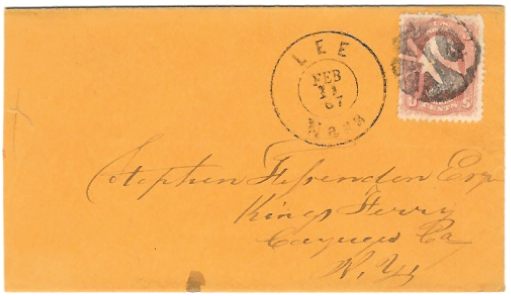 LEE
FEB
11
67
Mass
CENTS
Stephen Fessenden Esq
Kings Ferry
Cayuga Co
N. Y.